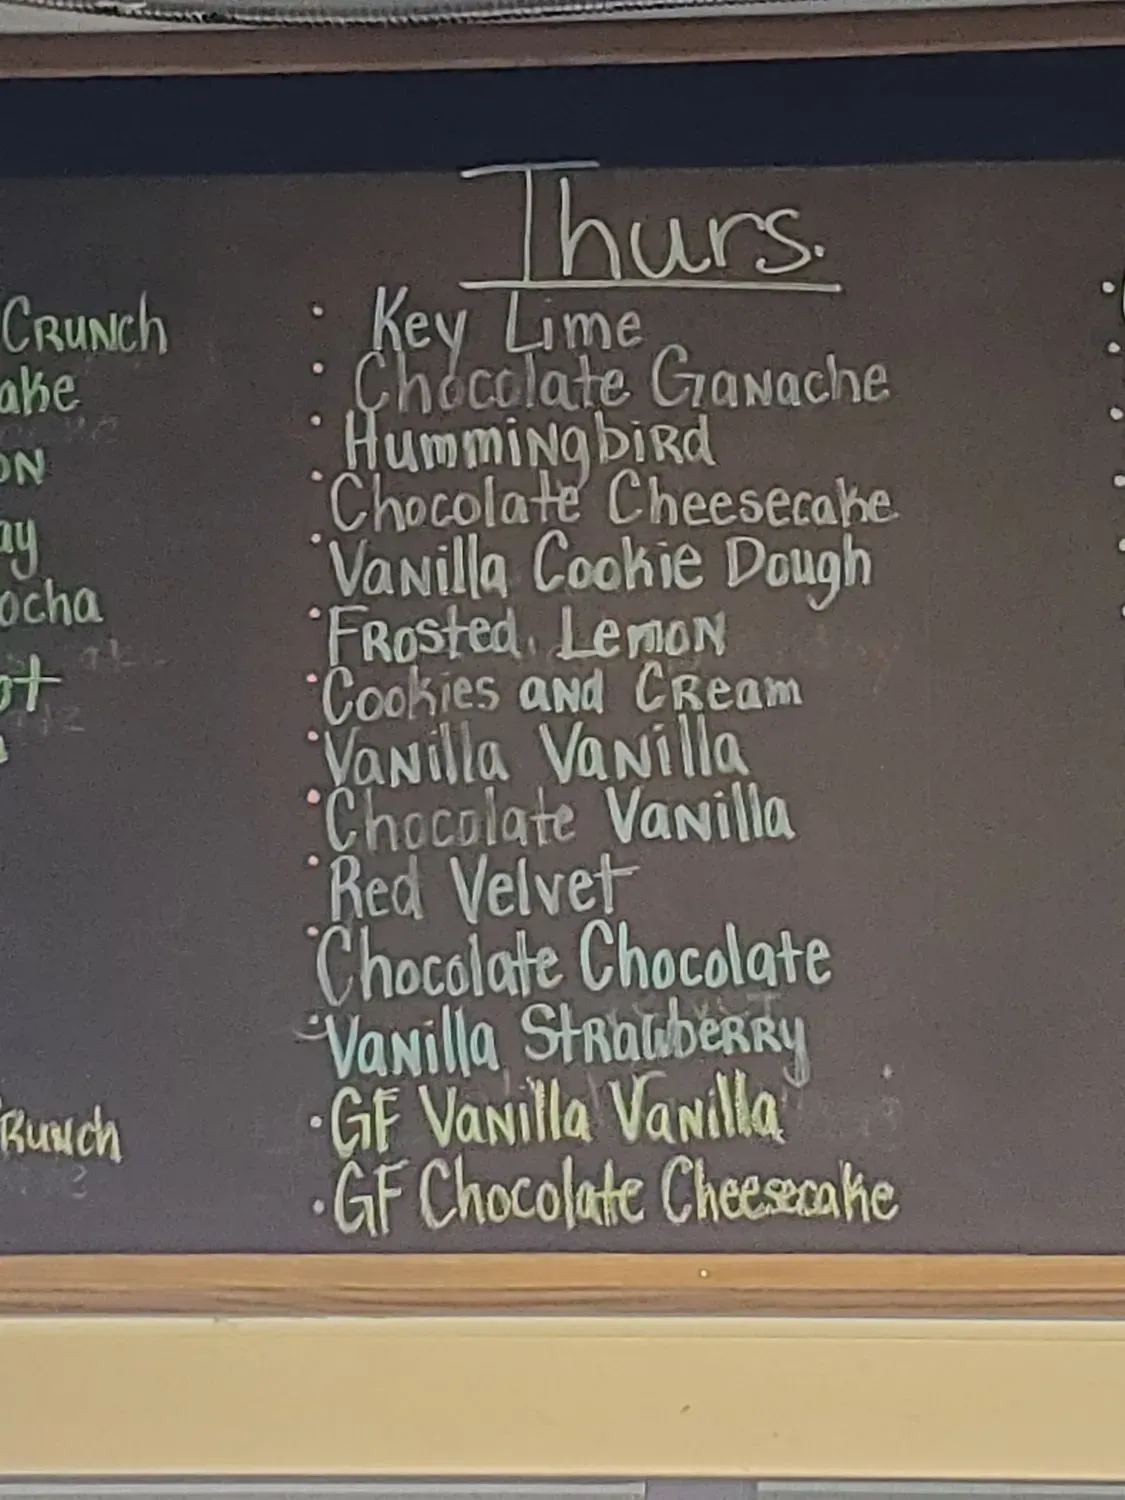 Thurs.
CRUNCH
Key Lime
Chocolate Ganache
Hummingbird
Chocolate Cheesecake
Vanilla Cookie Dough
ocha
Frosted Lemon
Cookies and Cream
Vanilla Vanilla
Chocolate Vanilla
Red Velvet
Chocolate Chocolate
Vanilla Strawberry
GF Vanilla Vanilla
Runch
GF Chocolate Cheesecake